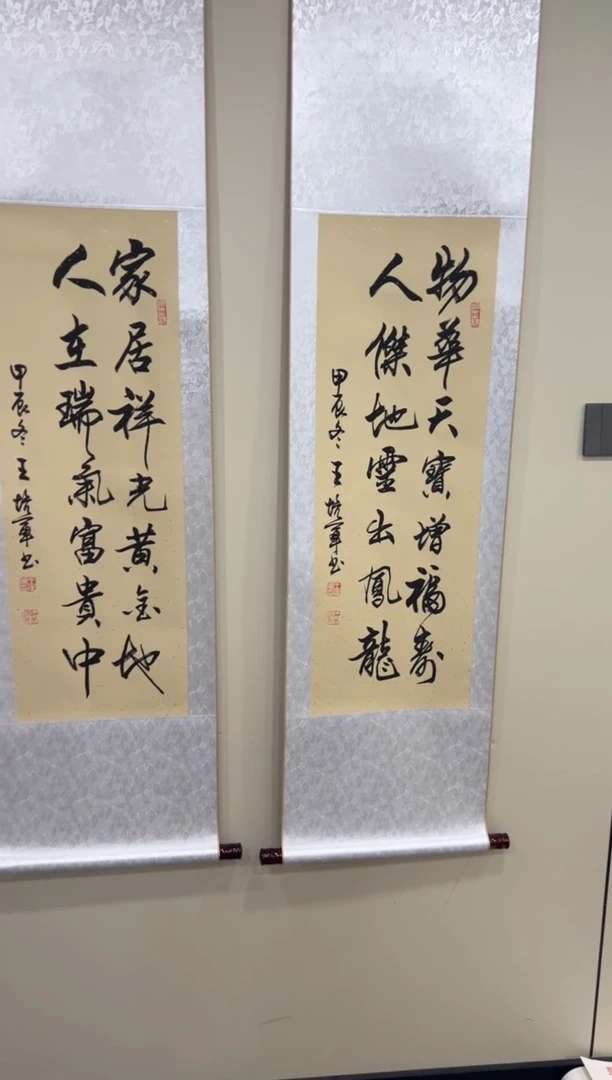 物華天寶增福壽
人傑地靈出鳳龍
甲辰冬王培軍书
家居祥光黄金地
人在瑞氣富貴中
甲辰冬王培軍书